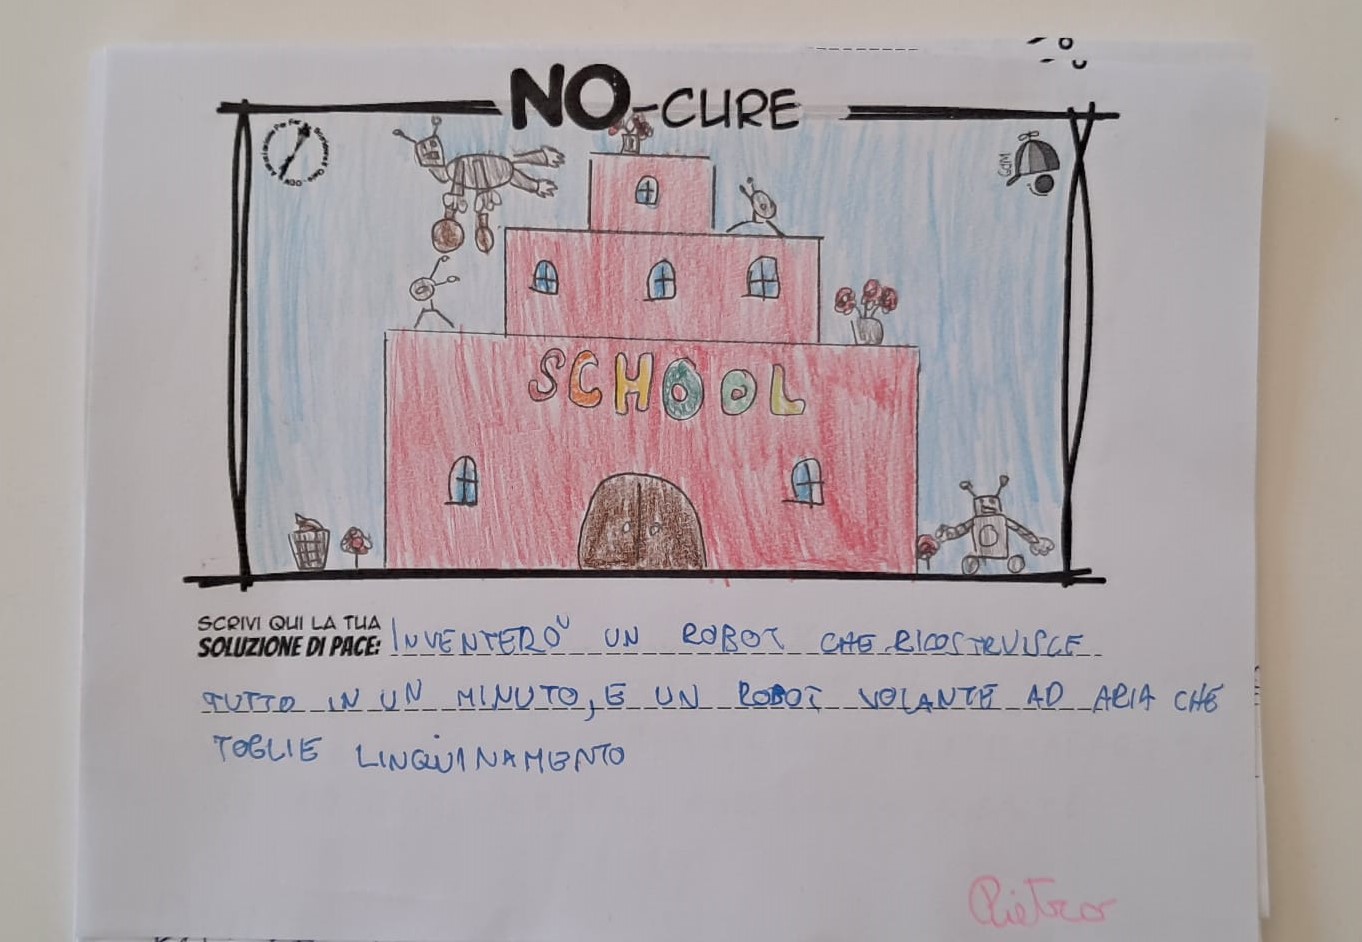 NO-CURE
SCHOOL
SCRIVI QUI LA TUA
SOLUZIONE DI PACE: INVENTERÒ UN ROBOT CHE RICOSTRUISCE
TUTTO IN UN MINUTO, E UN ROBOT VOLANTE AD ARIA CHE
TOGLIE LINQUINAMENTO
Pietro